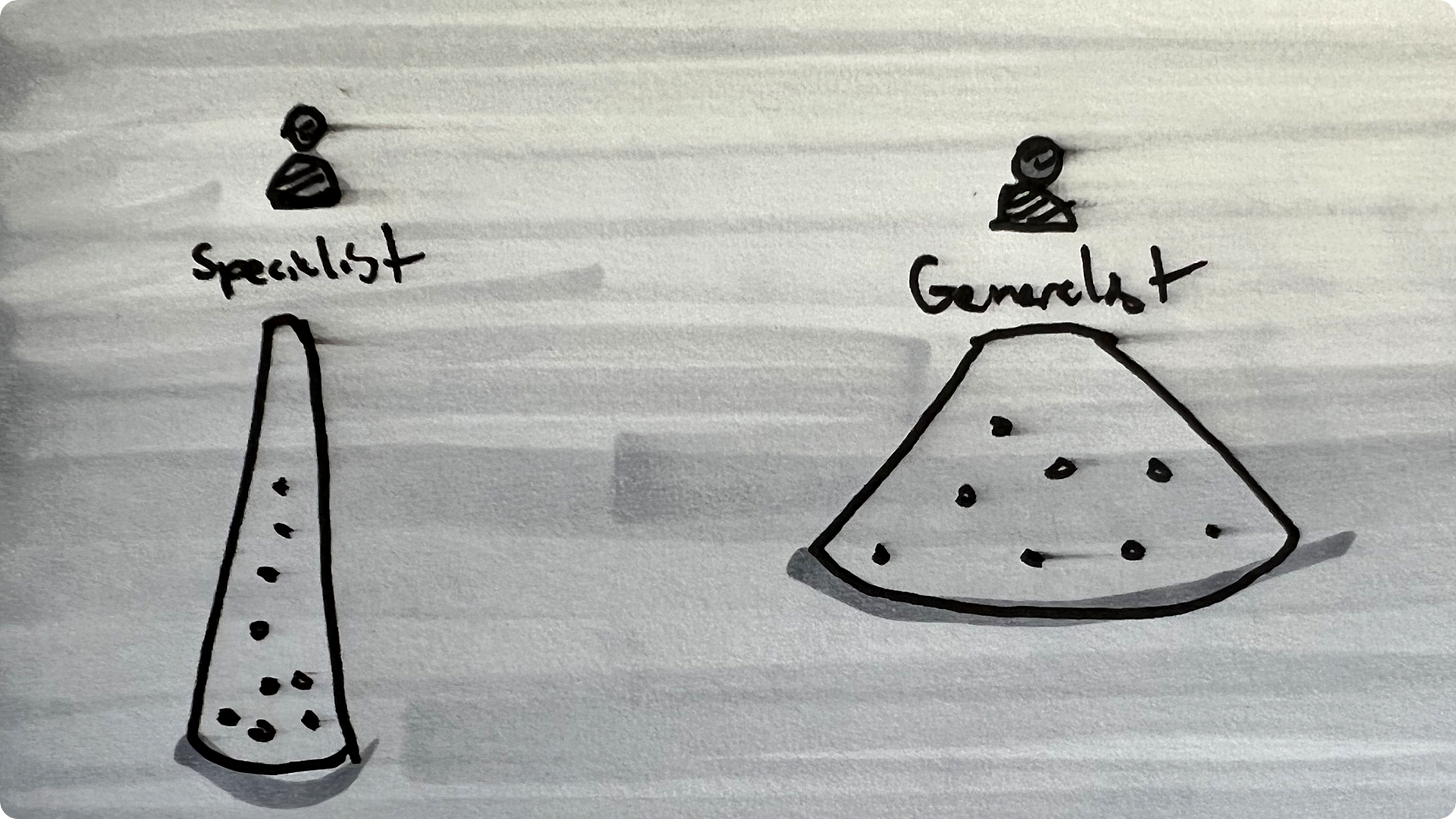 Specialist
Generalist